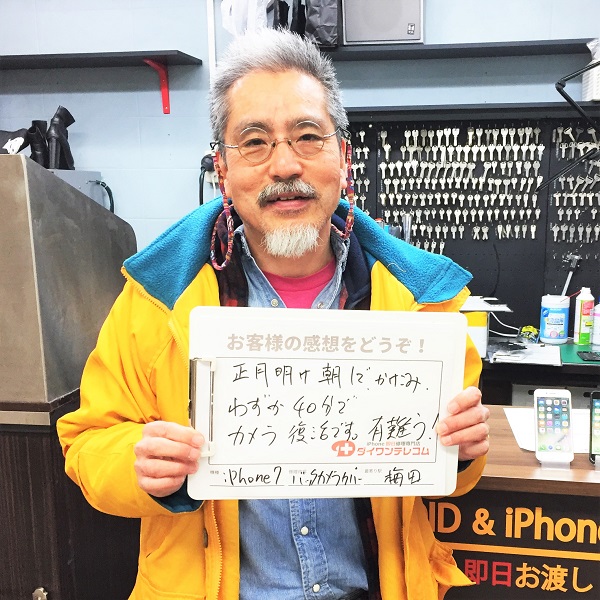 お客様の感想をどうぞ!
正月明け朝1でかけこみ.
わずか40分で
カメラ 復活です。有難う!
iPhone 即日修理専門店
ダイワンテレコム
機種 iPhone7
バックカメラカバー
最寄り駅 梅田
ND & iPhone
即日お渡し